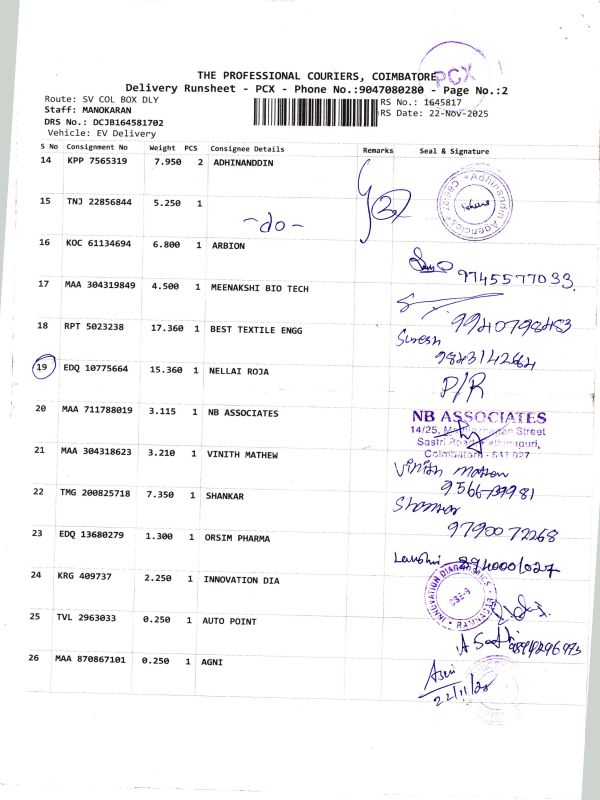 PCX
THE PROFESSIONAL COURIERS, COIMBATORE
Delivery Runsheet - PCX - Phone No.:9047080280 - Page No.:2
Route: SV COL BOX DLY
RS No.: 1645817
Staff: MANOKARAN
RS Date: 22-Nov-2025
DRS No.: DCJB164581702
Vehicle: EV Delivery
S No Consignment No Weight PCS Consignee Details Remarks Seal & Signature
14 KPP 7565319 7.950 2 ADHINANDDIN
15 TNJ 22856844 5.250 1 -do-
16 KOC 61134694 6.800 1 ARBION
9745577033
17 MAA 304319849 4.500 1 MEENAKSHI BIO TECH
9940798483
18 RPT 5023238 17.360 1 BEST TEXTILE ENGG
Suresh
9843142664
19 EDQ 10775664 15.360 1 NELLAI ROJA
P/R
20 MAA 711788019 3.115 1 NB ASSOCIATES
NB ASSOCIATES
14/25, Street
Sastri Road,
Coimbatore - 641 027
21 MAA 304318623 3.210 1 VINITH MATHEW
Vinith Mathew
22 TMG 200825718 7.350 1 SHANKAR
Shankar
9790072268
23 EDQ 13680279 1.300 1 ORSIM PHARMA
24 KRG 409737 2.250 1 INNOVATION DIA
INNOVATION DIAGNOSTICS
CBE-9
25 TVL 2963033 0.250 1 AUTO POINT
26 MAA 870867101 0.250 1 AGNI
22/11/25